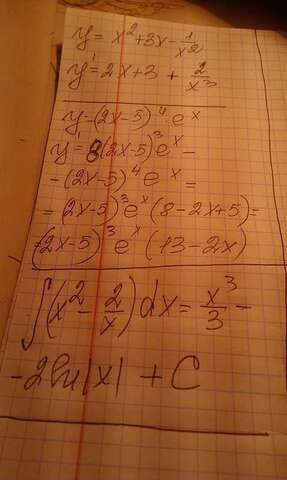 y = x² + 3x - 1/x²
y' = 2x + 3 + 2/x³
y - (2x-5)⁴ eˣ
y' = 8(2x-5)³ eˣ -
- (2x-5)⁴ eˣ =
= (2x-5)³ eˣ (8 - 2x + 5) =
= (2x-5)³ eˣ (13 - 2x)
∫(x² - 2/x) dx = x³/3 -
- 2ln|x| + C